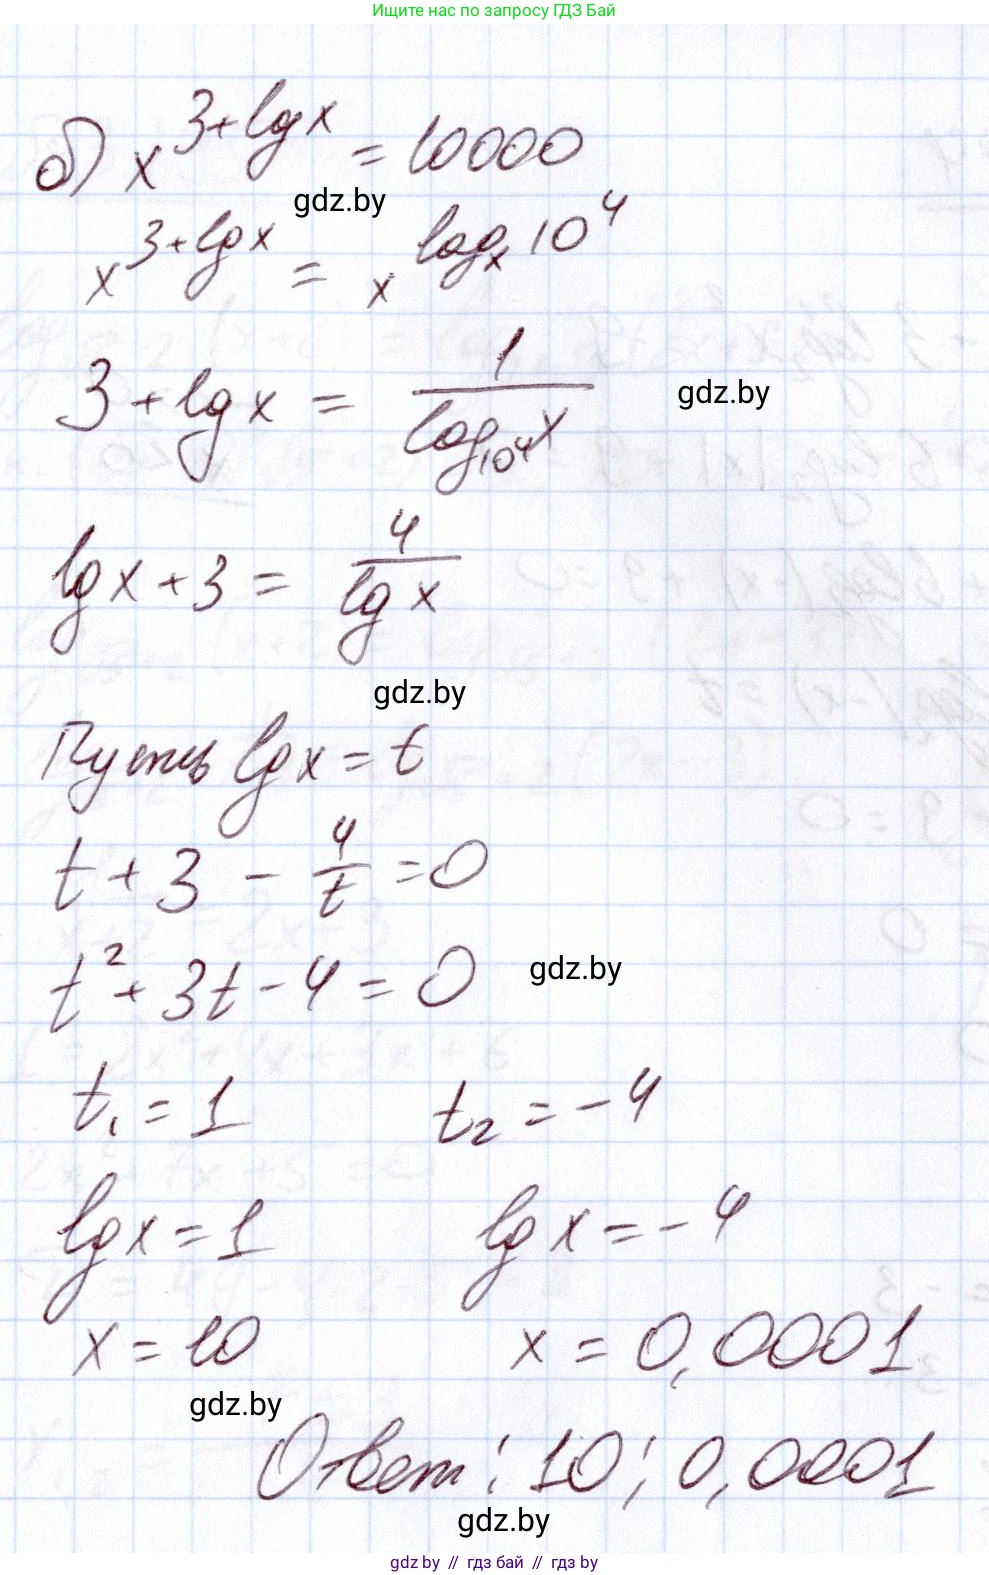 Ищите нас по запросу ГДЗ Бай
б) x^{3+lg x} = 10000
gdz.by
x^{3+lg x} = x^{log_x 10^4}
3 + lg x = \frac{1}{log_{10^4} x}
gdz.by
lg x + 3 = \frac{4}{lg x}
gdz.by
Пусть lg x = t
t + 3 - \frac{4}{t} = 0
t^2 + 3t - 4 = 0
gdz.by
t_1 = 1 t_2 = -4
lg x = 1 lg x = -4
x = 10 x = 0,0001
gdz.by
Ответ: 10; 0,0001
gdz.by
gdz by // гдз бай // гдз by